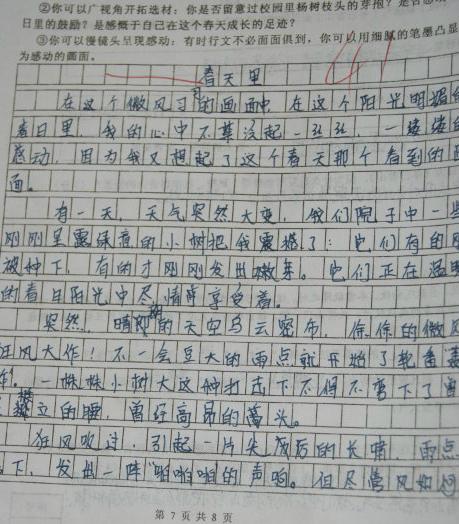 ②你可以广视角开拓选材：你是否留意过校园里杨树枝头的芽孢？是否感
日里的鼓励？是感慨于自己在这个春天成长的足迹？
③你可以慢镜头呈现感动：有时行文不必面面俱到，你可以用细腻的笔墨凸显
为感动的画面。
春天里
在这个微风习习的画面中，在这个阳光明媚的
春日里，我的心中不禁泛起一丝丝，一缕缕的
感动，因为我又想起了这个春天那个看到的画
面。
有一天，天气突然大变，我们院子中一些
刚刚呈露绿意的小树把我震撼了：它们有的刚
被种下，有的才刚刚发出嫩芽。它们正在温暖
的春日阳光中尽情享受着。
突然，晴朗的天空乌云密布，徐徐的微风
狂风大作！不一会豆大的雨点就开始了轮番轰
炸。一株株小树大这种打击下不得不弯下了曾
挺立的腰，曾经高昂的头。
狂风吹过，引起一片尖厉的长啸，雨点
下，发出一阵"啪啪啪"的声响。但尽管风如何
第 7 页 共 8 页